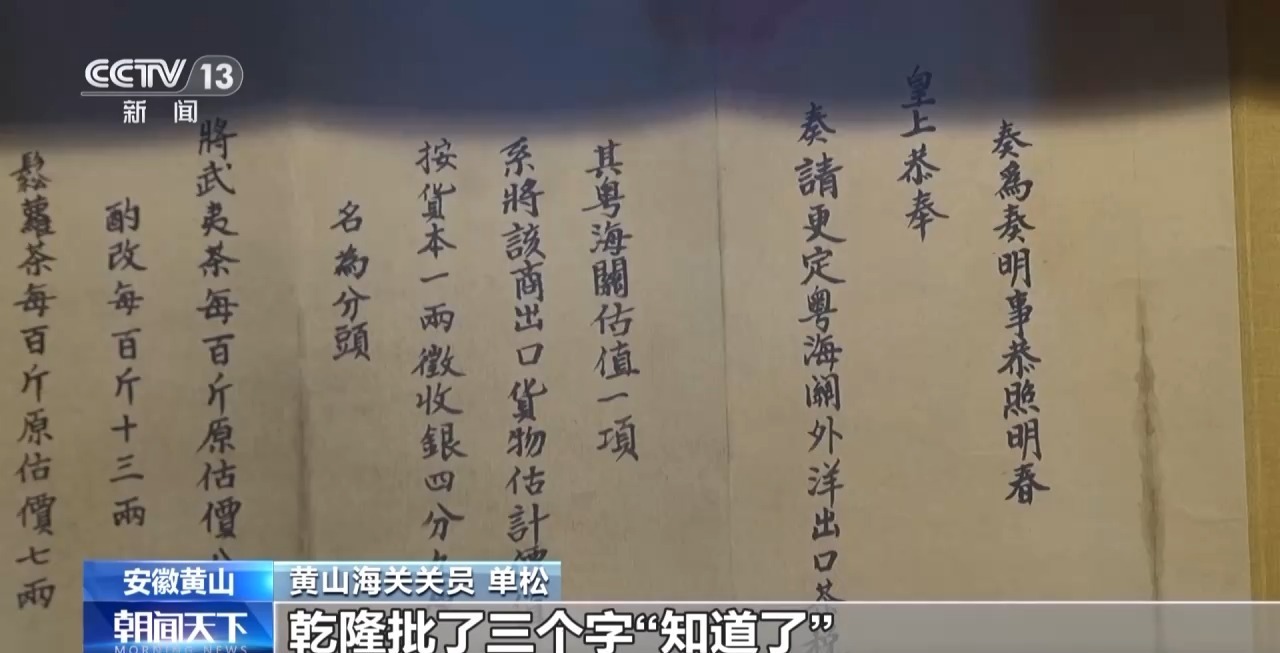 CCTV 13
新闻
奏為奏明事恭照明春
皇上恭奉
奏請更定粤海關外洋出口
其粤海關估值一項
系將該商出口貨物估計價
按貨本一兩徵收銀四分
名為分頭
將武夷茶每百斤原估價八
酌改每百斤十三兩
鬆蘿茶每百斤原估價七兩
安徽黄山
黄山海关关员 单松
朝闻天下
MORNING NEWS
乾隆批了三个字“知道了”